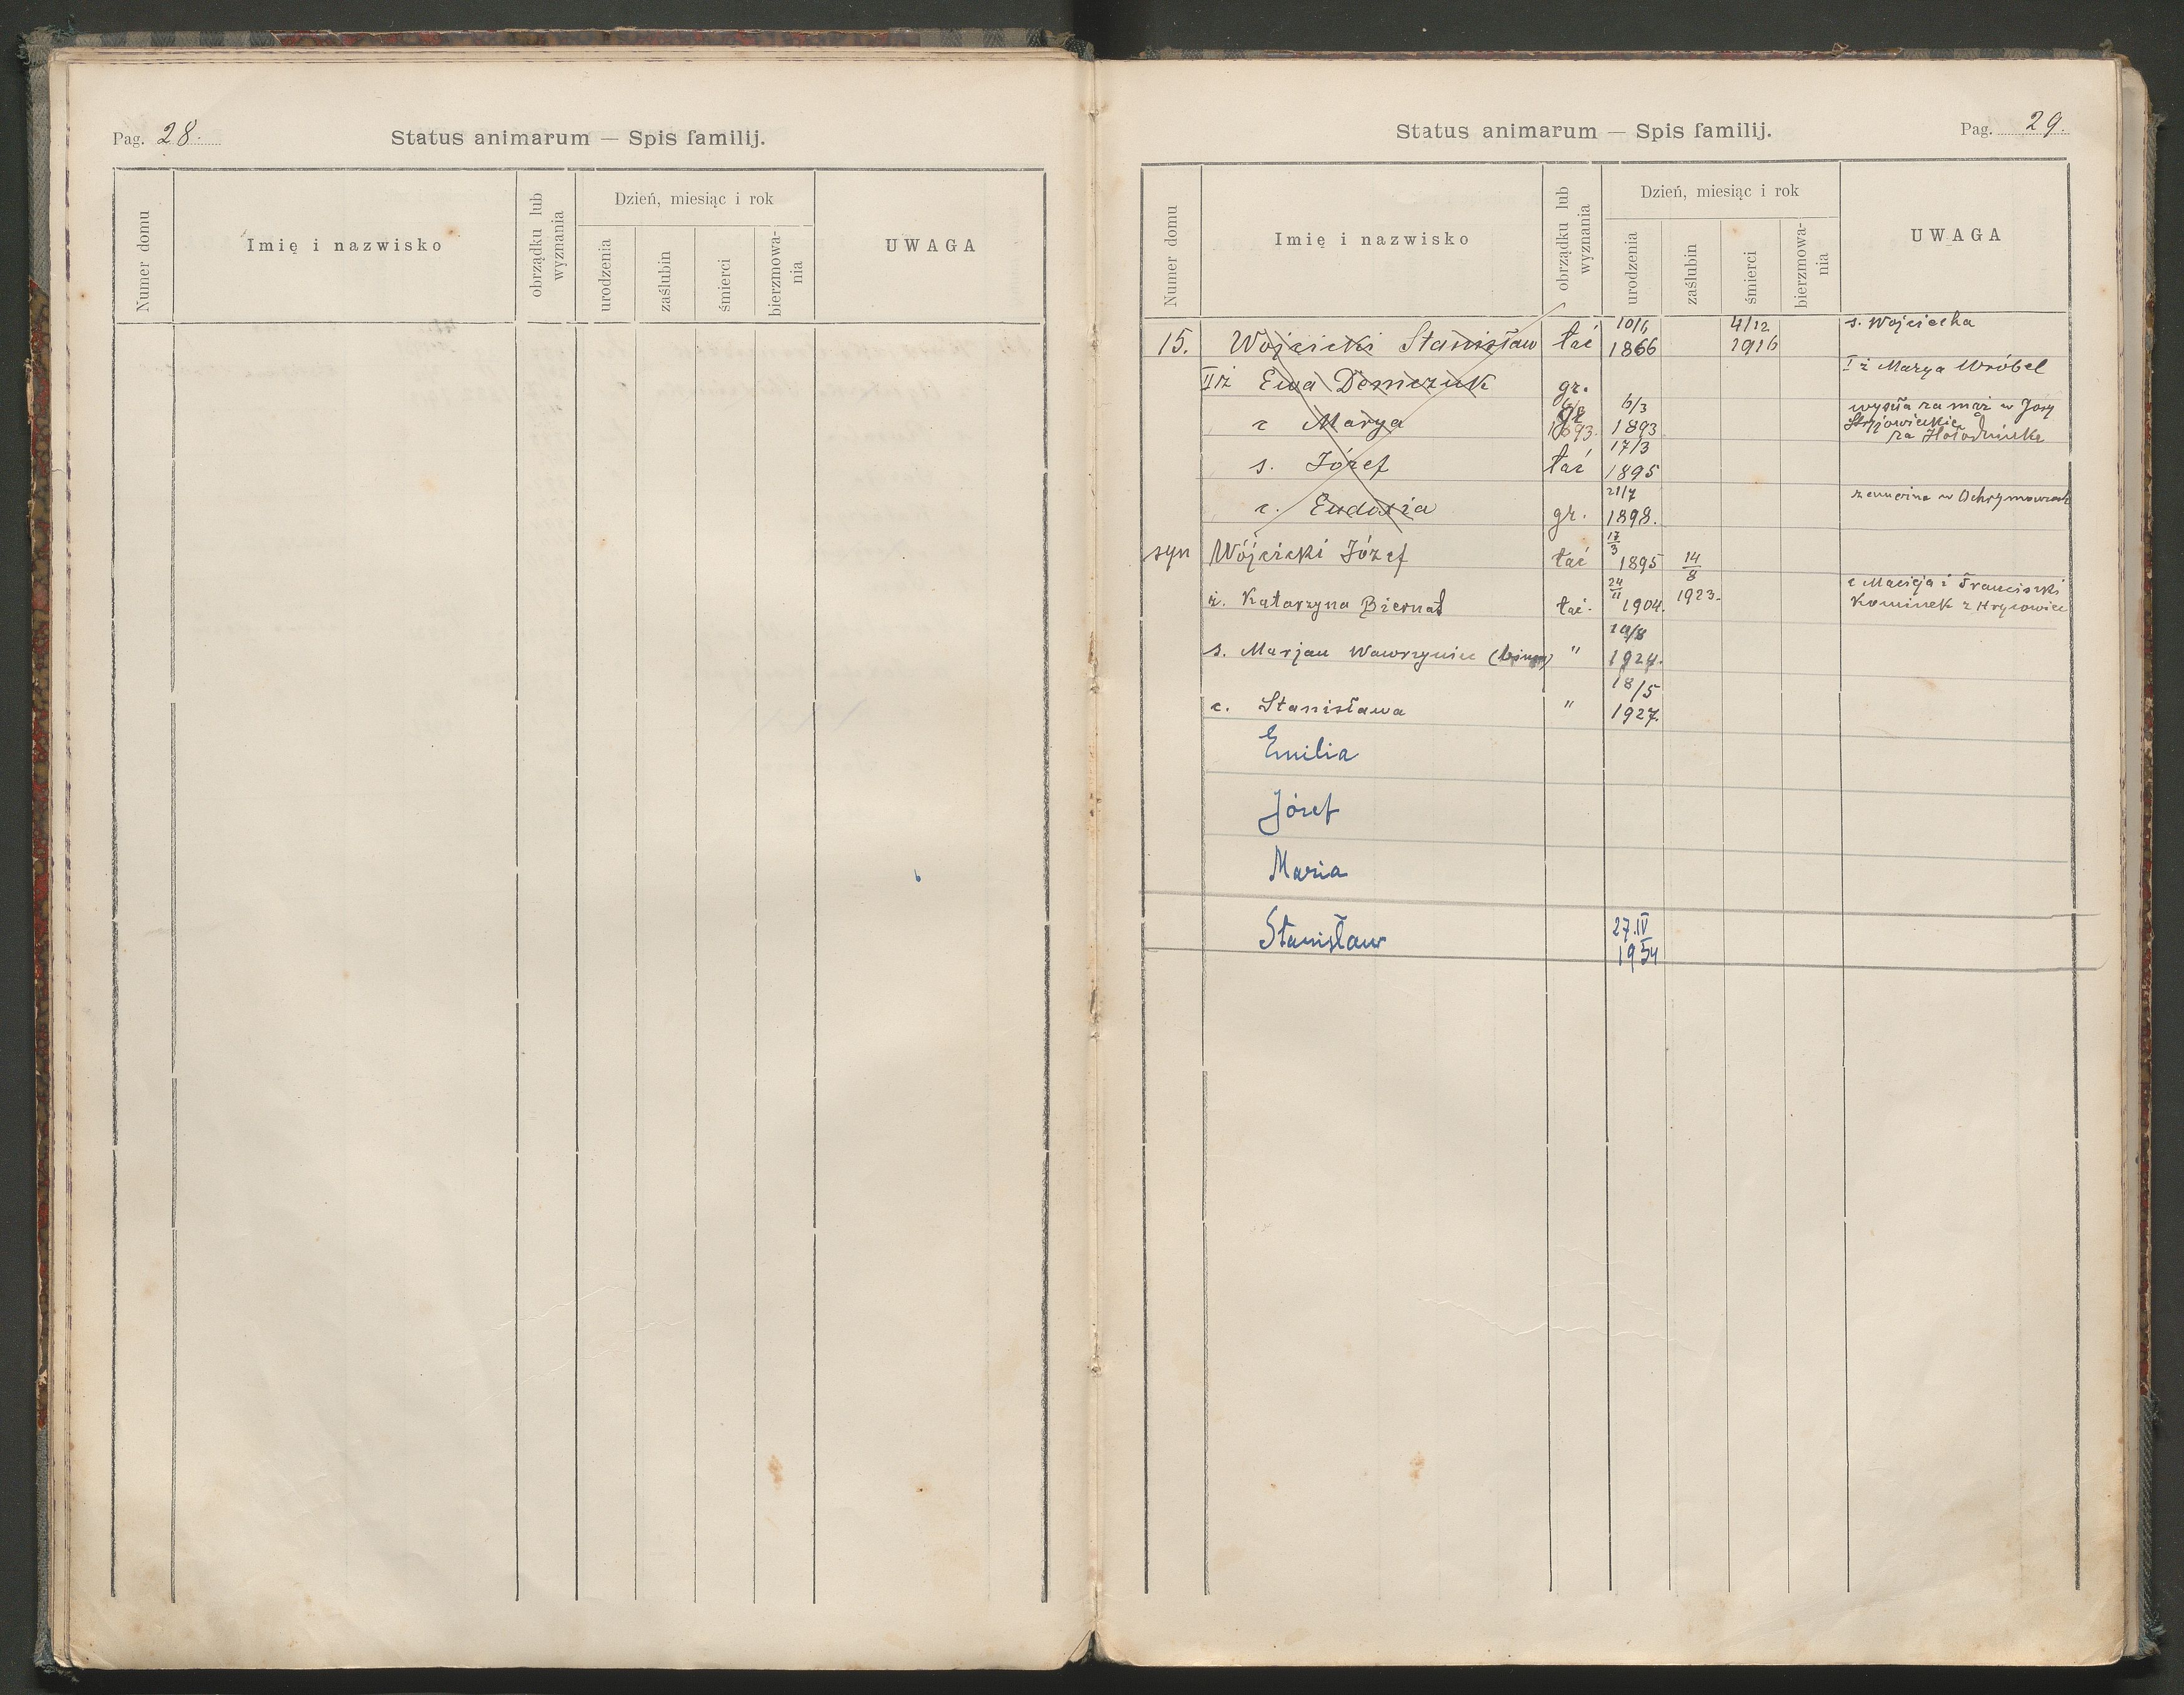 Pag. 28.
Status animarum — Spis familij.
Numer domu
Imię i nazwisko
obrządku lub wyznania
Dzień, miesiąc i rok
urodzenia
zaślubin
śmierci
bierzmowa-
nia
UWAGA
Status animarum — Spis familij.
Pag. 29.
Numer domu
Imię i nazwisko
obrządku lub wyznania
Dzień, miesiąc i rok
urodzenia
zaślubin
śmierci
bierzmowa-
nia
UWAGA
15. Wójcicki Stanisław łać 10/6 1866 4/12 1916 s. Wojciecha
II ż Ewa Demczuk gr. I ż Marya Wróbel
c Marya gr 6/3 1893 wyszła za mąż w Góry
Stryjowieckie
za
s. Józef łać 17/3 1895
c. Eudoxia gr. 21/7 1898. w
syn Wójcicki Józef łać 17/3 1895 14/8 1923.
ż. Katarzyna Biernat łać. 24/11 1904. c Macieja i Franciszki
Kominek z Hrycowiec
s. Marjan Wawrzyniec " 10/8 1924.
c. Stanisława " 18/5 1927.
Emilia
Józef
Maria
Stanisław 27.IV 1954